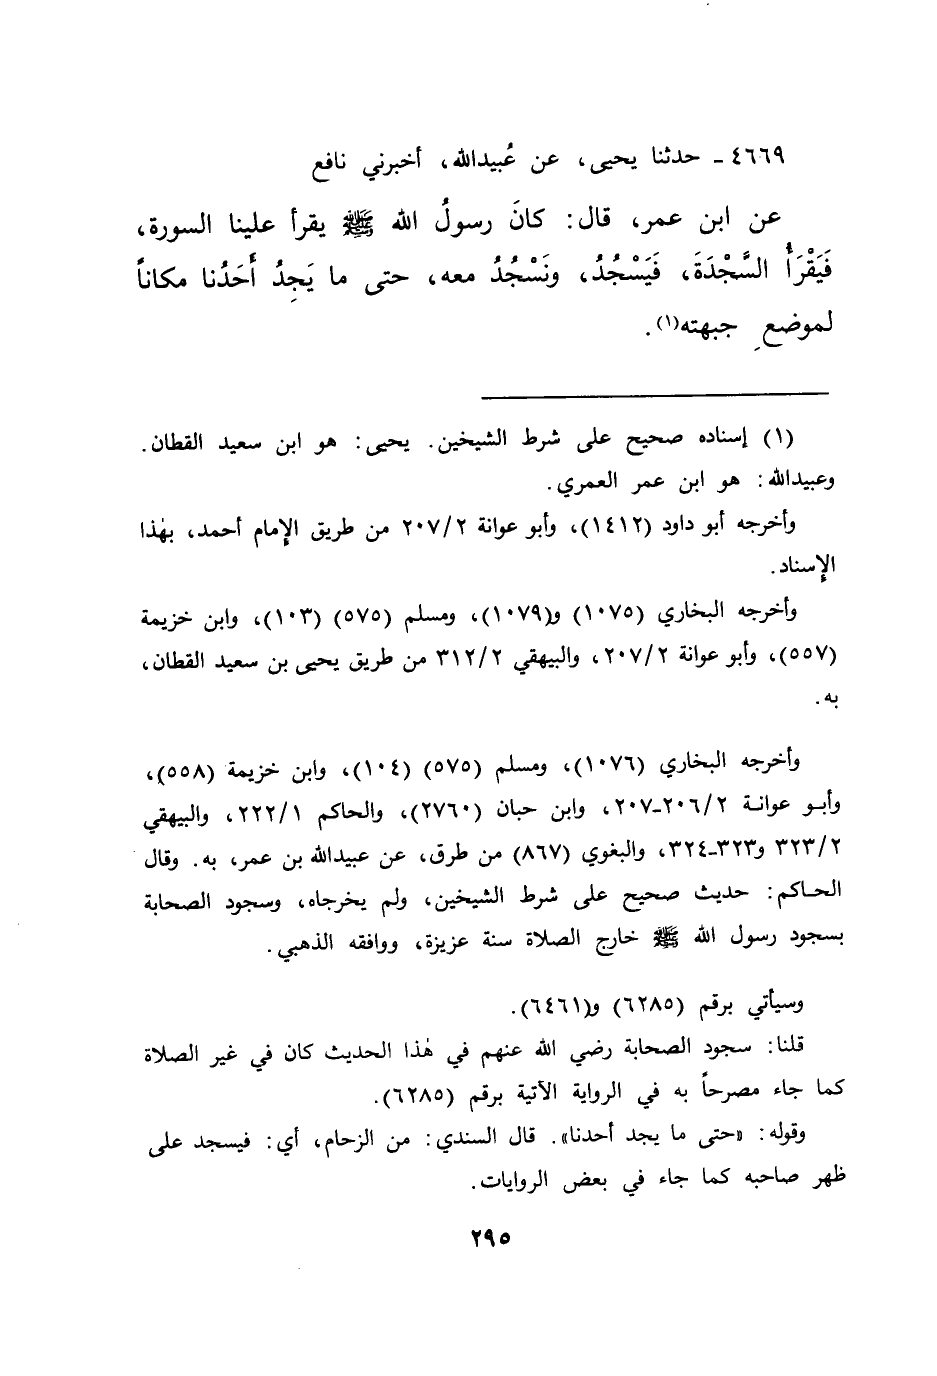 ٤٦٦٩ - حدثنا يحيى، عن عُبيدالله، أخبرني نافع
عن ابن عمر، قال: كانَ رسولُ الله ﷺ يقرأ علينا السورة،
فَيَقْرَأُ السَّجْدَةَ، فَيَسْجُدُ، ونَسْجُدُ معه، حتى ما يَجِدُ أَحَدُنا مكاناً
لموضعِ جبهته(١).
(١) إسناده صحيح على شرط الشيخين. يحيى: هو ابن سعيد القطان.
وعبيدالله: هو ابن عمر العمري.
وأخرجه أبو داود (١٤١٢)، وأبو عوانة ٢٠٧/٢ من طريق الإمام أحمد، بهٰذا
الإسناد.
وأخرجه البخاري (١٠٧٥) و(١٠٧٩)، ومسلم (٥٧٥) (١٠٣)، وابن خزيمة
(٥٥٧)، وأبو عوانة ٢٠٧/٢، والبيهقي ٣١٢/٢ من طريق يحيى بن سعيد القطان،
به.
وأخرجه البخاري (١٠٧٦)، ومسلم (٥٧٥) (١٠٤)، وابن خزيمة (٥٥٨)،
وأبو عوانة ٢٠٦/٢-٢٠٧، وابن حبان (٢٧٦٠)، والحاكم ٢٢٢/١، والبيهقي
٣٢٣/٢ و٣٢٣-٣٢٤، والبغوي (٨٦٧) من طرق، عن عبيدالله بن عمر، به. وقال
الحاكم: حديث صحيح على شرط الشيخين، ولم يخرجاه، وسجود الصحابة
بسجود رسول الله ﷺ خارج الصلاة سنة عزيزة، ووافقه الذهبي.
وسيأتي برقم (٦٢٨٥) و(٦٤٦١).
قلنا: سجود الصحابة رضي الله عنهم في هٰذا الحديث كان في غير الصلاة
كما جاء مصرحاً به في الرواية الآتية برقم (٦٢٨٥).
وقوله: «حتى ما يجد أحدنا». قال السندي: من الزحام، أي: فيسجد على
ظهر صاحبه كما جاء في بعض الروايات.
٢٩٥